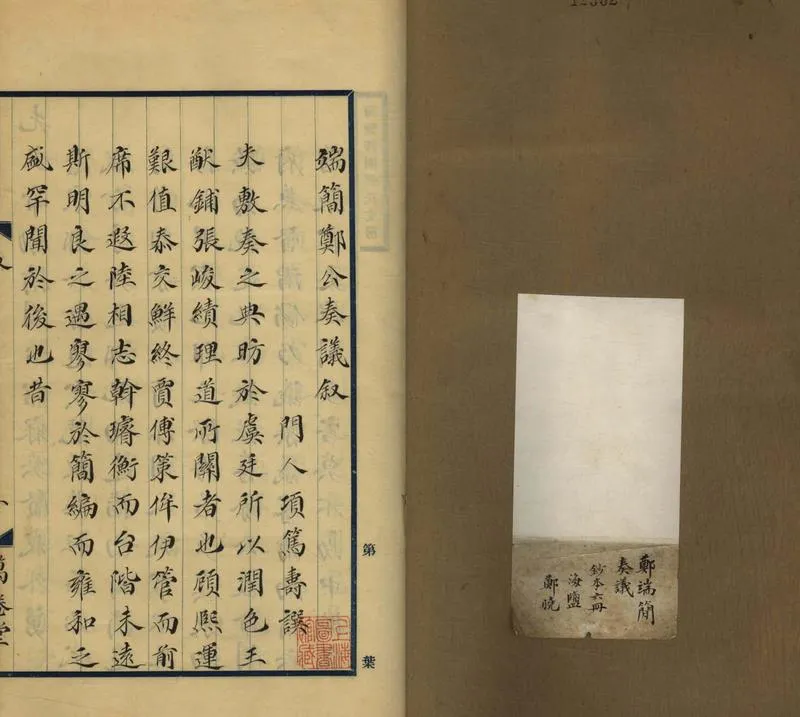 鄭端簡
奏議
鈔本六冊
海鹽
鄭晓
第 葉
端簡鄭公奏議叙
門人項篤壽譔
夫敷奏之典昉於虞廷所以潤色王
猷鋪張峻績理道所關者也顧熙運
艱值泰交鮮終賈傅策侔伊管而前
席不遐陸相志斡璿衡而台階未遠
斯明良之遇寥寥於簡編而雍和之
盛罕聞於後也昔
上海圖書館藏
萬卷堂